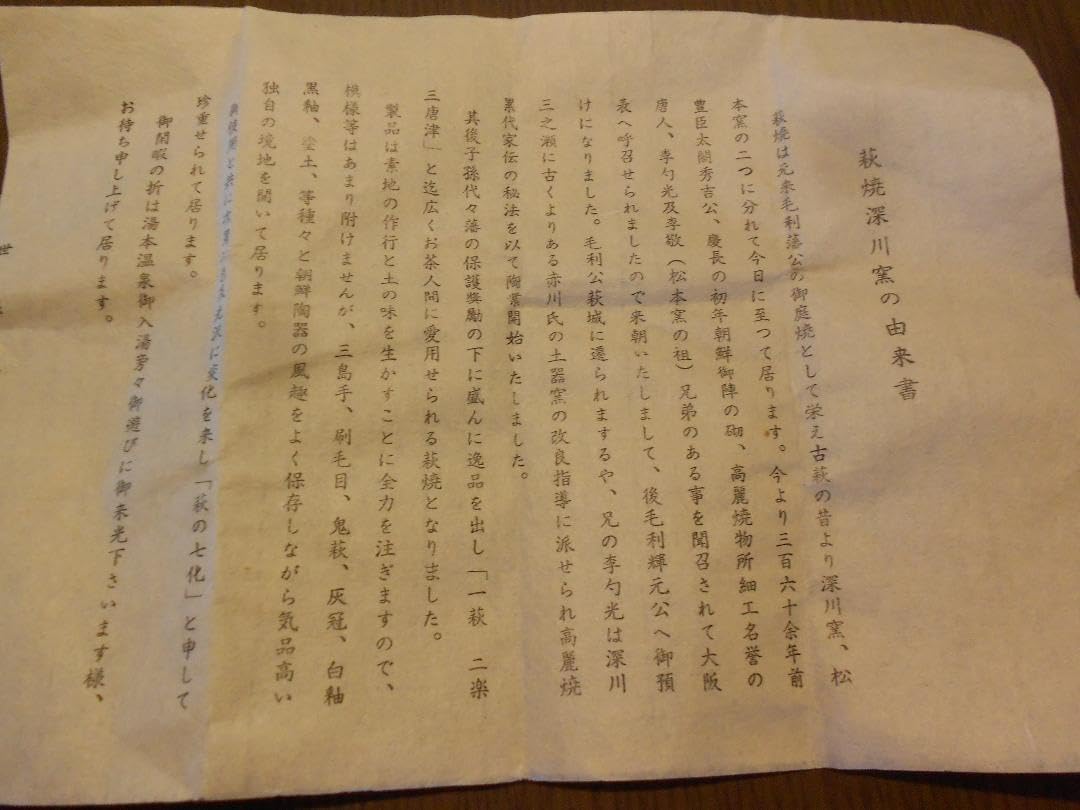 萩焼深川窯の由来書
萩焼は元来毛利藩公の御庭焼として栄え古萩の昔より深川窯、松
本窯の二つに分れて今日に至つて居ります。今より三百六十余年前
豊臣太閤秀吉公、慶長の初年朝鮮御陣の砌、高麗焼物所細工名誉の
唐人、李勺光及李敬（松本窯の祖）兄弟のある事を聞召されて大阪
表へ呼召せられましたので来朝いたしまして、後毛利輝元公へ御預
けになりました。毛利公萩城に遷られまするや、兄の李勺光は深川
三之瀬に古くよりある赤川氏の土器窯の改良指導に派せられ高麗焼
累代家伝の秘法を以て陶業開始いたしました。
其後子孫代々藩の保護奨励の下に盛んに逸品を出し「一萩　二楽
三唐津」と迄広くお茶人間に愛用せられる萩焼となりました。
製品は素地の作行と土の味を生かすことに全力を注ぎますので、
模様等はあまり附けませんが、三島手、刷毛目、鬼萩、灰冠、白釉
黒釉、塗土、等種々と朝鮮陶器の風趣をよく保存しながら気品高い
独自の境地を開いて居ります。
と共に 光沢に変化を来し「萩の七化」と申して
珍重せられて居ります。
御閑暇の折は湯本温泉御入湯旁々御遊びに御来光下さいます様、
お待ち申し上げて居ります。
世